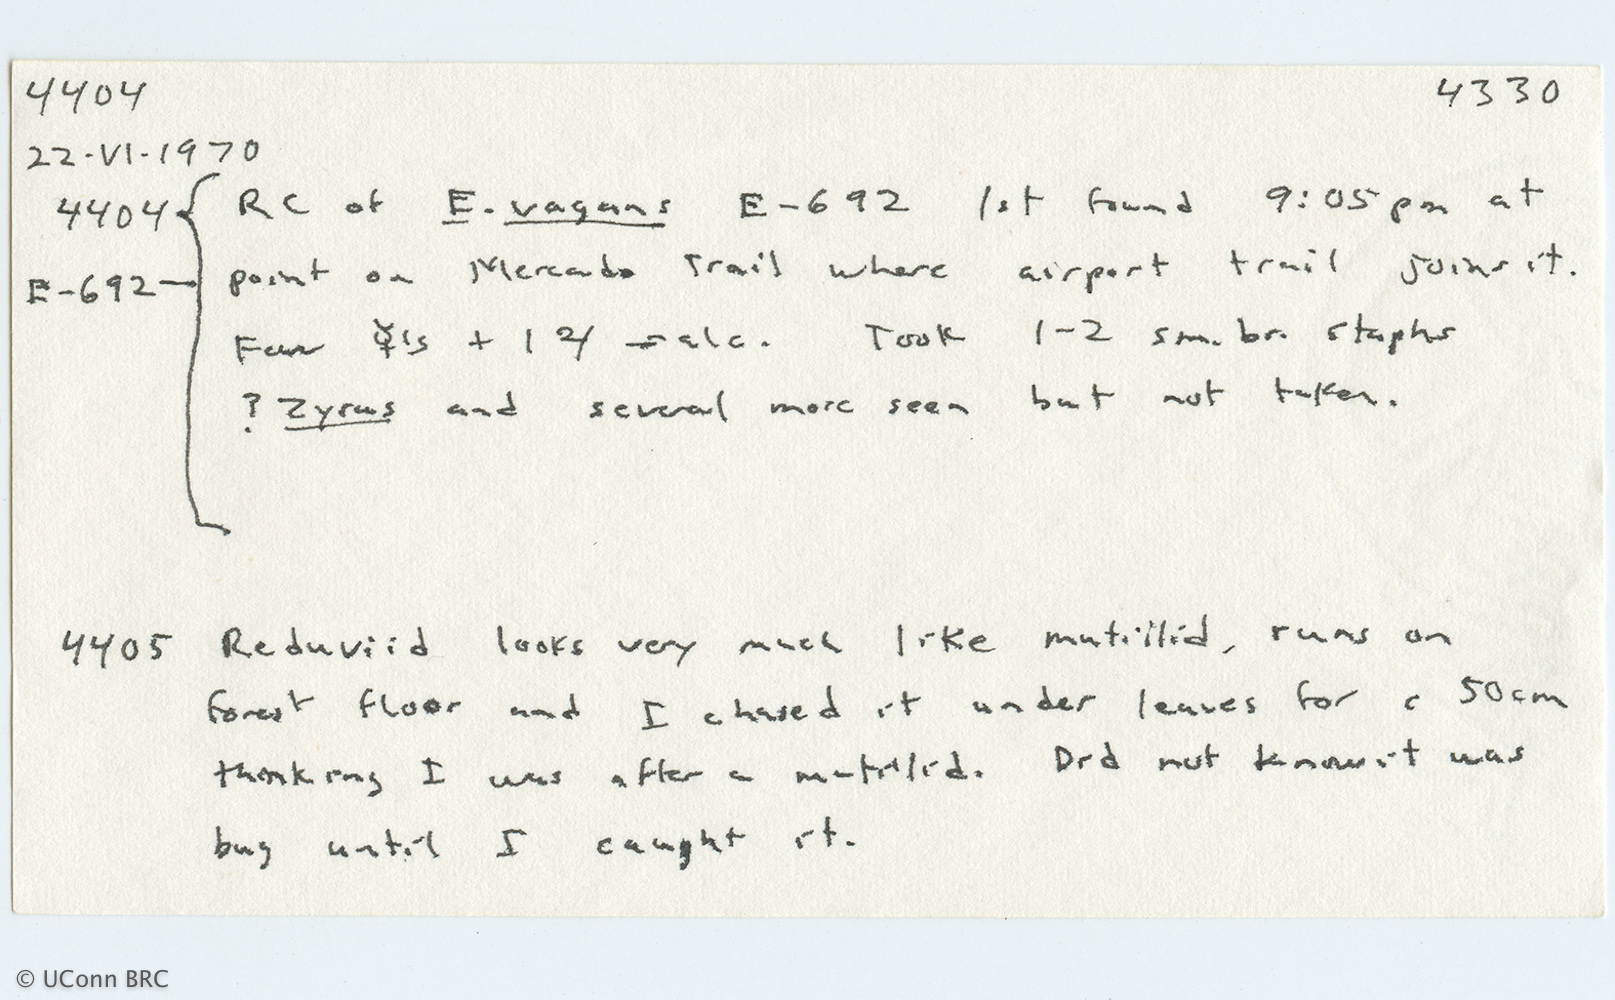 4404 4330
22-VI-1970
4404 { RC of E. vagans E-692 1st found 9:05 pm at
E-692 point on Mercado Trail where airport trail joins it.
Few ☿'s + 1 ♃ in alc. Took 1-2 sm. br. staphs
? Zyras and several more seen but not taken.
4405 Reduviid looks very much like mutillid, runs on
forest floor and I chased it under leaves for c 50cm
thinking I was after a mutillid. Did not know it was
bug until I caught it.
© UConn BRC